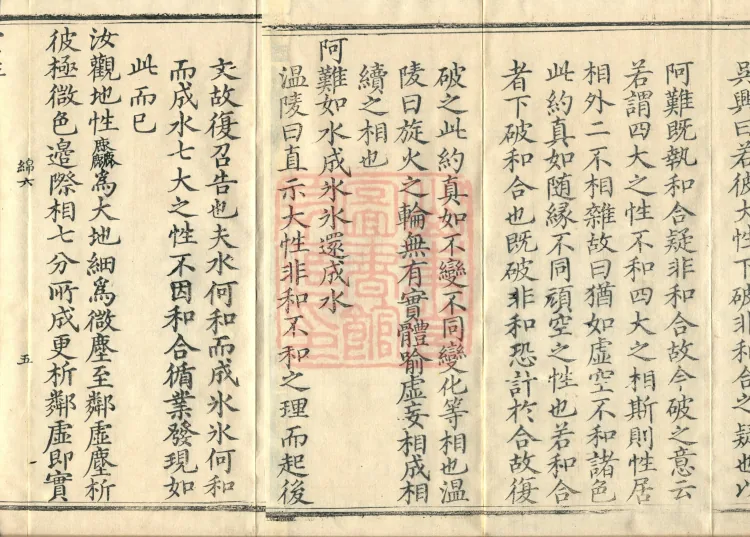 吳興曰若彼大性下破非和合之疑也以
阿難既執和合疑非和合故今破之意云
若謂四大之性不和四大之相斯則性居
相外二不相雜故曰猶如虛空不和諸色
此約真如随縁不同頑空之性也若和合
者下破和合也既破非和恐計於合故復
破之此約真如不變不同變化等相也溫
陵曰旋火之輪無有實體喻虛妄相成相
續之相也
阿難如水成氷氷還成水
溫陵曰直示大性非和不和之理而起後
文故復召告也夫水何和而成氷氷何和
而成水七大之性不因和合循業發現如
此而已
汝觀地性麤爲大地細爲微塵至鄰虛塵析
彼極微色邊際相七分所成更析鄰虛即實
綿六
五